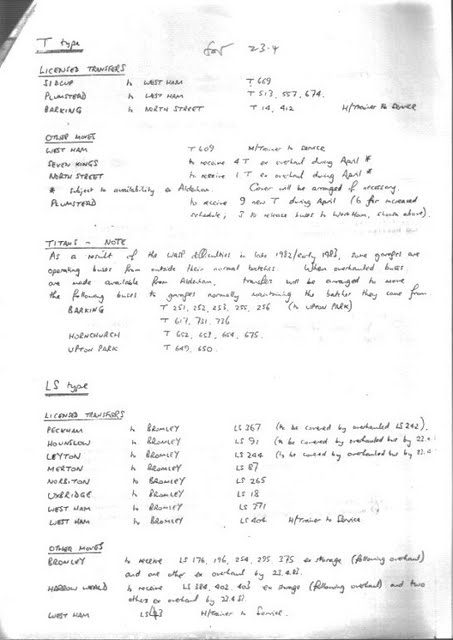 T type
for 23.4
LICENSED TRANSFERS
SIDCUP to WEST HAM T 669
PLUMSTEAD to WEST HAM T 513, 557, 674.
BARKING to NORTH STREET T 14, 412 H/Trainer to Service
OTHER MOVES
WEST HAM T 609 H/Trainer to Service
SEVEN KINGS to receive 4 T ex overhaul during April *
NORTH STREET to receive 1 T ex overhaul during April *
* subject to availability ex Aldenham. Cover will be arranged if necessary.
PLUMSTEAD to receive 9 new T during April (6 for increased
schedule, 3 to release buses to West Ham, shown above).
TITANS - NOTE
As a result of the difficulties in late 1982/early 1983, some garages are
operating buses from outside their normal batches. When overhauled buses
are made available from Aldenham, transfers will be arranged to move
the following buses to garages normally maintaining the batches they came from.
BARKING T 251, 252, 253, 255, 256 (to UPTON PARK)
T 617, 731, 736
HORNCHURCH T 652, 653, 654, 675.
UPTON PARK T 649, 650.
LS type
LICENSED TRANSFERS
PECKHAM to BROMLEY LS 367 (to be covered by overhauled LS 242).
HOUNSLOW to BROMLEY LS 91 (to be covered by overhauled bus by 22.4.
LEYTON to BROMLEY LS 244 (to be covered by overhauled bus by 22.4.
MERTON to BROMLEY LS 87
NORBITON to BROMLEY LS 265
UXBRIDGE to BROMLEY LS 18
WEST HAM to BROMLEY LS 771
WEST HAM to BROMLEY LS 406 H/Trainer to Service
OTHER MOVES
BROMLEY to receive LS 176, 196, 254, 295, 375 ex storage (following overhaul)
and one other ex overhaul by 23.4.83.
HARROW WEALD to receive LS 384, 402, 403 ex storage (following overhaul) and two
others ex overhaul by 23.4.83.
WEST HAM H/Trainer to Service.